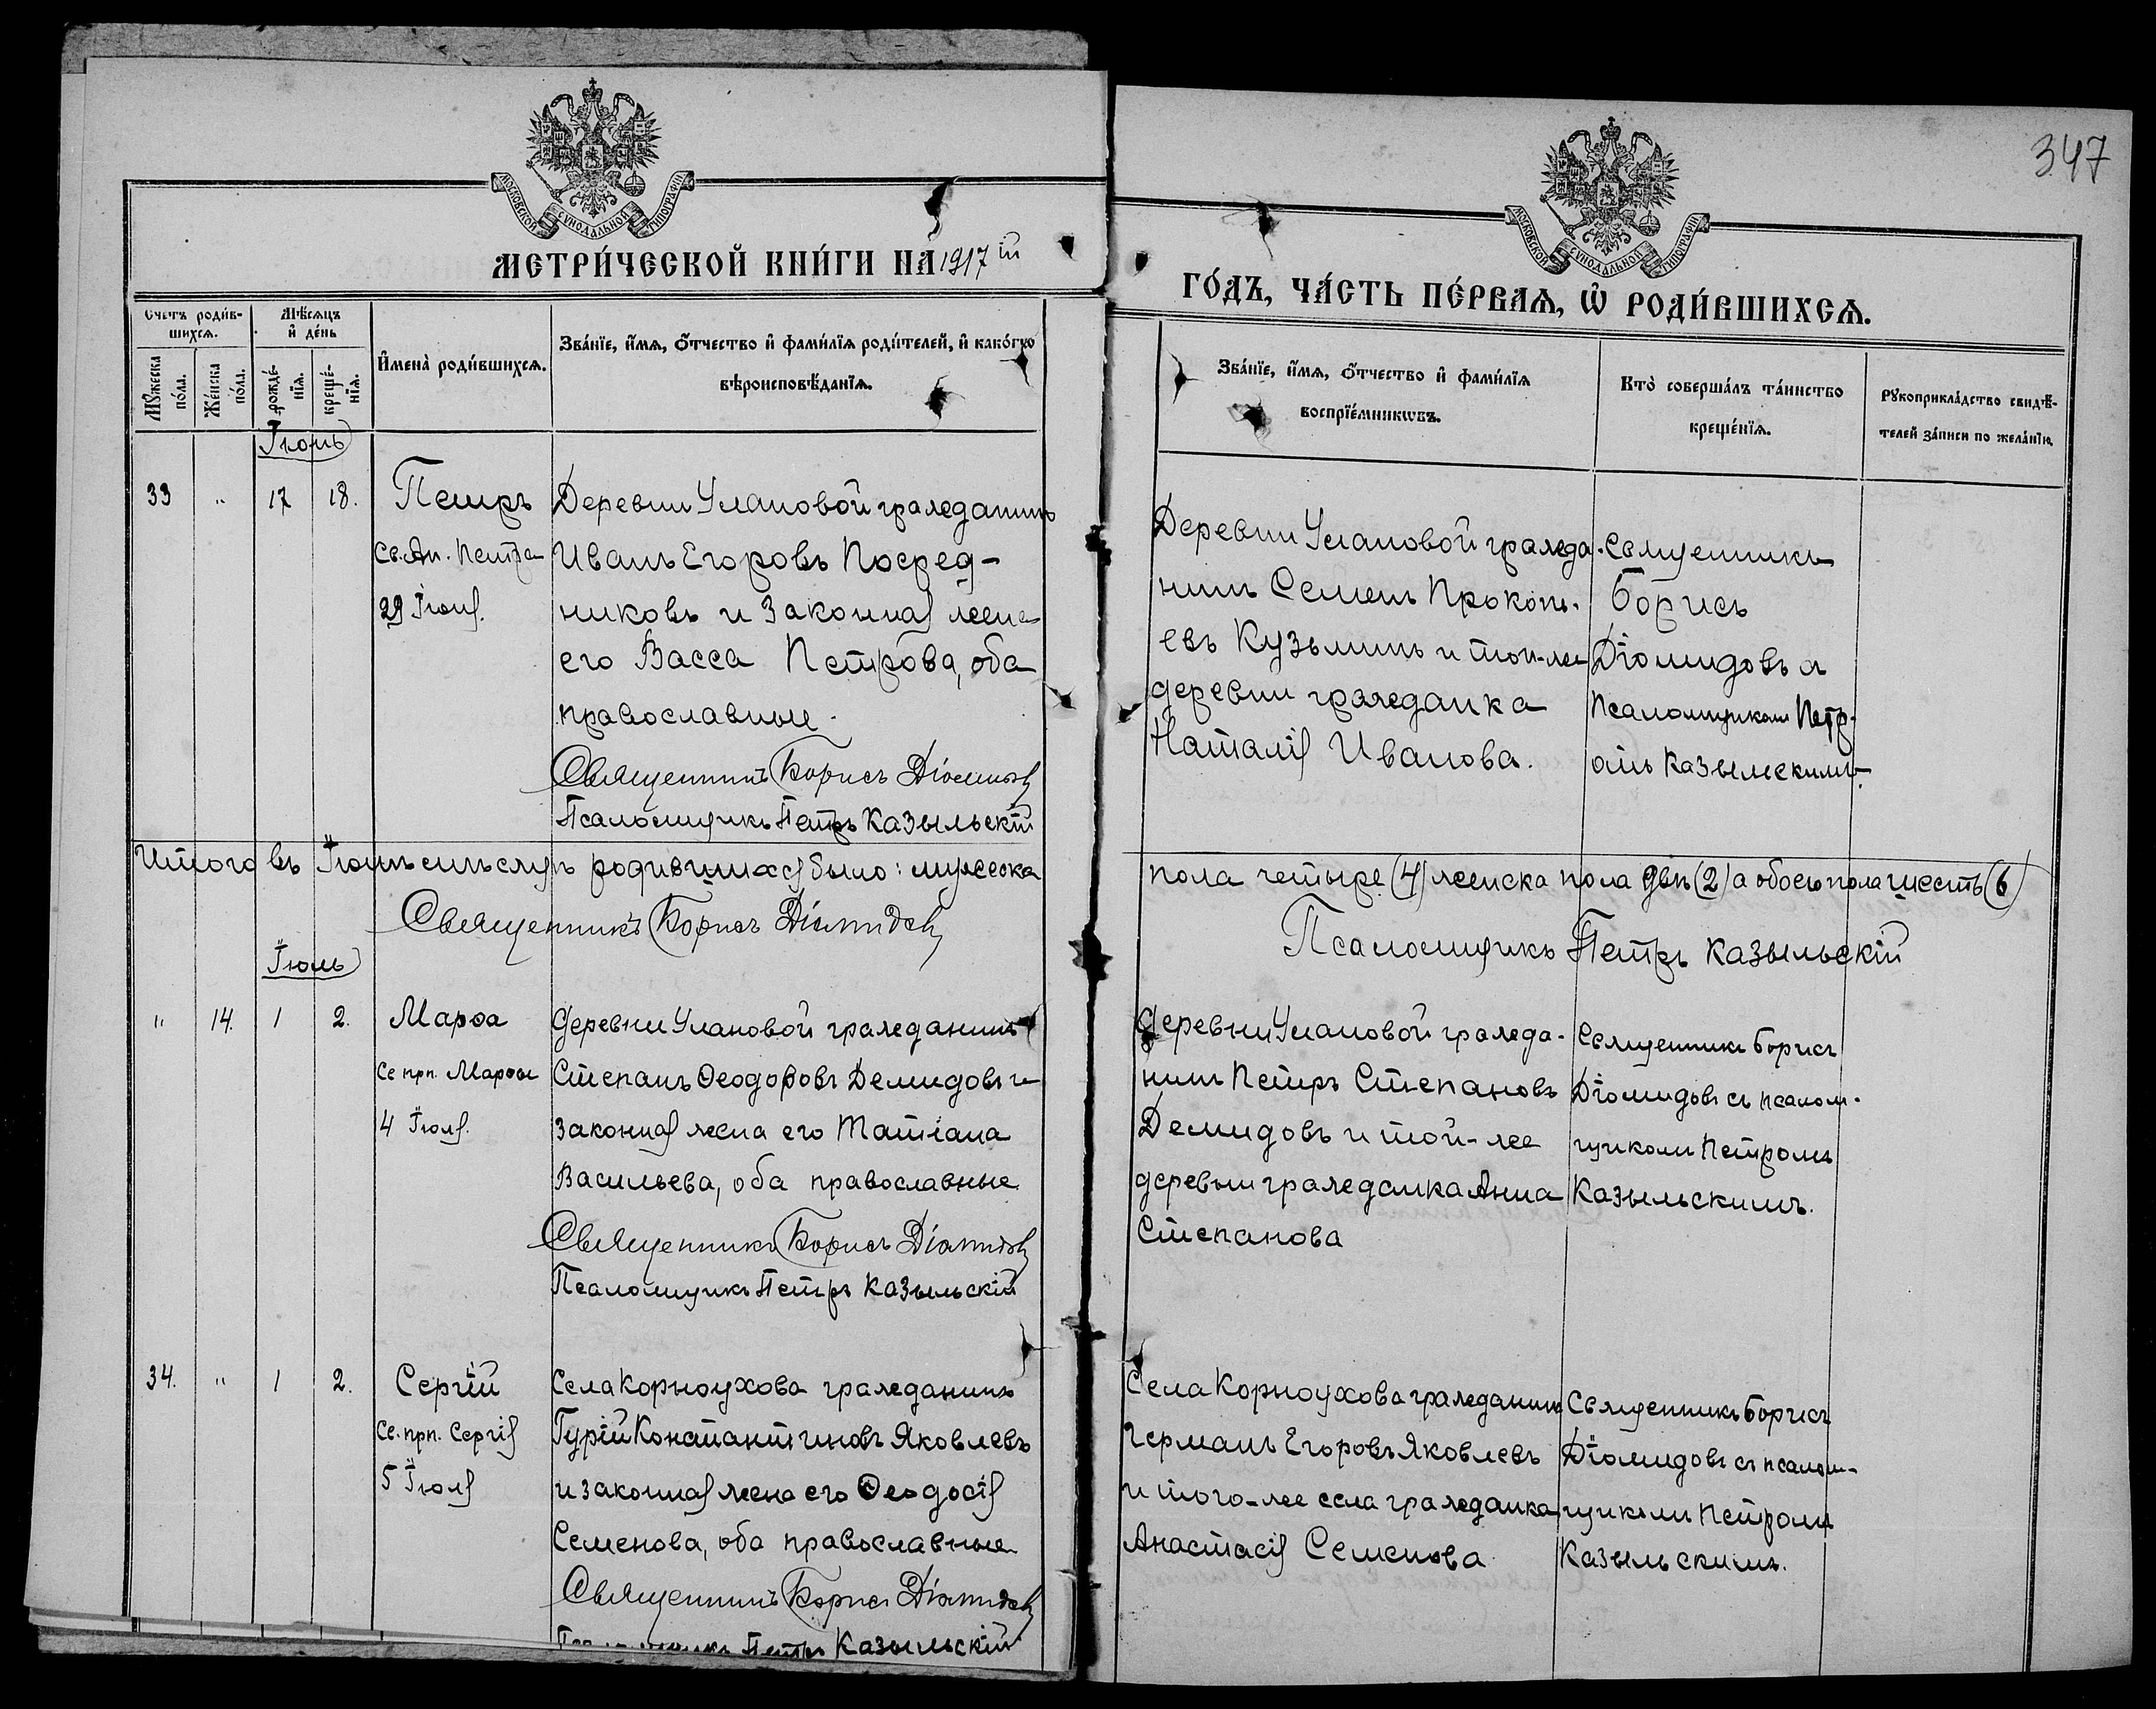 347
МОСКОВСКОЙ СѴНОДАЛЬНОЙ ТИПОГРАФІИ
МОСКОВСКОЙ СѴНОДАЛЬНОЙ ТИПОГРАФІИ
МЕТРИ́ЧЕСКОЙ КНИ́ГИ НА 1917 й
ГО́ДЪ, ЧА́СТЬ ПЕ́РВАѦ, Ѡ҆ РОДИ́ВШИХСѦ.
Счетъ роди́в-
шихсѧ.
Мѣ́сѧцъ
и҆ де́нь
Мꙋ́жеска
по́ла.
Же́нска
по́ла.
рожде́-
нїѧ.
креще́-
нїѧ.
И҆мена̀ роди́вшихсѧ.
Зва́нїе, и҆́мѧ, ѻ҆́тчество и҆ фами́лїѧ роди́телей, и҆ како́гѡ
вѣроисповѣ́данїѧ.
Зва́нїе, и҆́мѧ, ѻ҆́тчество и҆ фами́лїѧ
воспрїе́мникѡвъ.
Кто̀ соверша́лъ та́инство
креще́нїѧ.
Рꙋкоприкла́дство свидѣ́-
телей за́писи по жела́нїю.
Іюнь
33 " 17 18.
Петръ
Св. Ап. Петра
29 Іюня.
Деревни Улановой гражданинъ
Иванъ Егоровъ Посред-
никовъ и законная жена
его Васса Петрова, оба
православные.
Священникъ Борисъ Діомидовъ
Псаломщикъ Петръ Казыльскій
Деревни Улановой гражда-
нинъ Семенъ Прокопь-
евъ Кузьминъ и той-же
деревни гражданка
Наталія Иванова.
Священникъ
Борисъ
Діомидовъ съ
Псаломщикомъ Петр-
омъ Казыльскимъ.
Итого въ Іюнѣ мѣсяцѣ родившихся было: мужеска
пола четыре (4) женска пола двѣ (2) а обоего пола шесть (6)
Священникъ Борисъ Діомидовъ
Псаломщикъ Петръ Казыльскій
Іюль
" 14. 1 2.
Марѳа
Св прп. Марѳы
4 Іюля.
Деревни Улановой гражданинъ
Степанъ Ѳеодоровъ Демидовъ и
законная жена его Татіана
Васильева, оба православные
Священникъ Борисъ Діомидовъ
Псаломщикъ Петръ Казыльскій
Деревни Улановой гражда-
нинъ Петръ Степановъ
Демидовъ и той-же
деревни гражданка Анна
Степанова
Священникъ Борисъ
Діомидовъ съ псалом-
щикомъ Петромъ
Казыльскимъ.
34. " 1 2.
Сергій
Св. прп. Сергія
5 Іюля
Села Корноухова гражданинъ
Гурій Константиновъ Яковлевъ
и законная жена его Ѳеодосія
Семенова, оба православные
Священникъ Борисъ Діомидовъ
Псаломщикъ Петръ Казыльскій
Села Корноухова гражданинъ
Германъ Егоровъ Яковлевъ
и того-же села гражданка
Анастасія Семенова
Священникъ Борисъ
Діомидовъ съ псалом-
щикомъ Петромъ
Казыльскимъ.